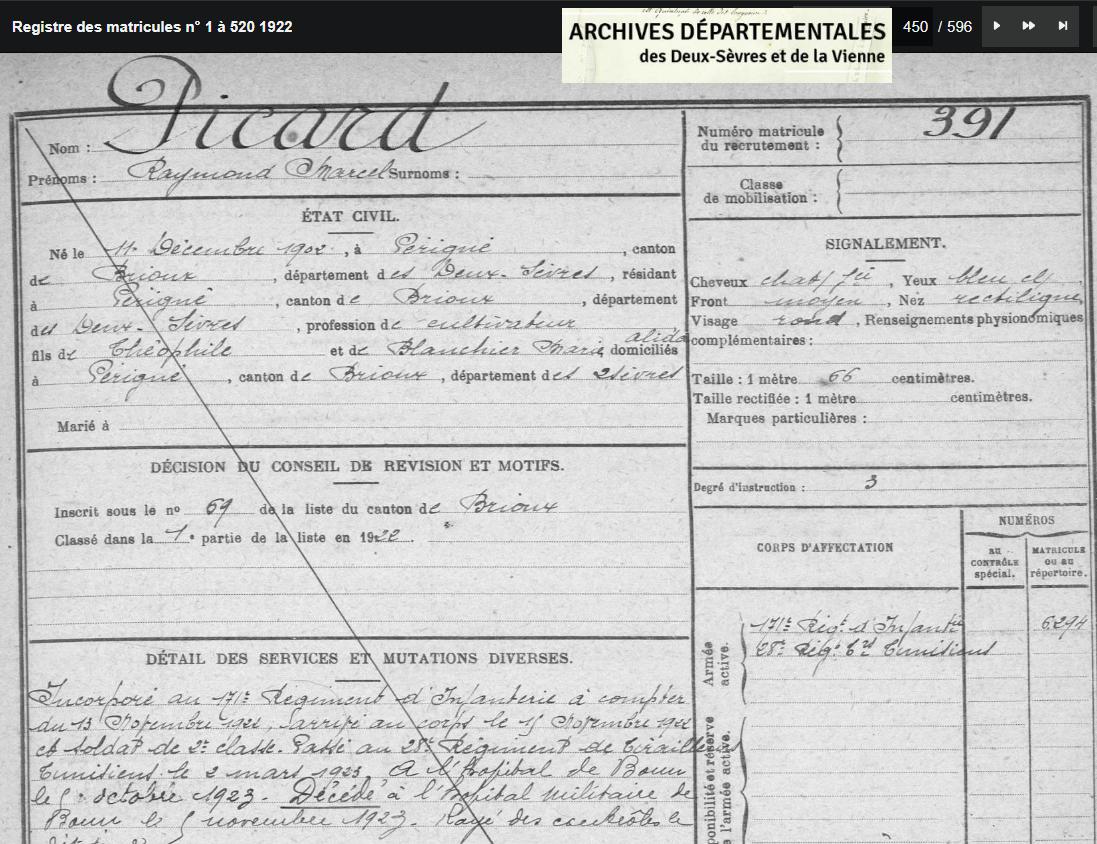 Registre des matricules n° 1 à 520 1922
ARCHIVES DÉPARTEMENTALES
des Deux-Sèvres et de la Vienne
450 / 596
Nom : Picard
Prénoms : Raymond Marcel Surnoms :
ÉTAT CIVIL.
Né le 11 Décembre 1902, à Périgné, canton
de Brioux, département des Deux-Sèvres, résidant
à Périgné, canton de Brioux, département
des Deux-Sèvres, profession de cultivateur
fils de Théophile et de Blanchier Marie alida domiciliés
à Périgné, canton de Brioux, département des 2 sèvres
Marié à
DÉCISION DU CONSEIL DE REVISION ET MOTIFS.
Inscrit sous le no 69 de la liste du canton de Brioux
Classé dans la 1e partie de la liste en 1922.
DÉTAIL DES SERVICES ET MUTATIONS DIVERSES.
Incorporé au 171e Régiment d'Infanterie à compter
du 13 Novembre 1922, arrivé au corps le 15 Novembre 1922
et soldat de 2e classe. Passé au 28e Régiment de Tirailleurs
Tunisiens le 2 mars 1923. A l'hôpital de Bonn
le octobre 1923. Décédé à l'hôpital militaire de
Bonn le 5 novembre 1923. Rayé des contrôles le
Numéro matricule
du recrutement : 391
Classe
de mobilisation :
SIGNALEMENT.
Cheveux chat, Yeux bleu cl,
Front moyen, Nez rectiligne,
Visage rond, Renseignements physionomiques
complémentaires :
Taille : 1 mètre 66 centimètres.
Taille rectifiée : 1 mètre centimètres.
Marques particulières :
Degré d'instruction : 3
CORPS D'AFFECTATION
NUMÉROS
au
CONTRÔLE
spécial.
MATRICULE
ou au
répertoire.
Armée
active.
171e Régt d'Infantie 6294
28e Régt Tunisiens
ponibilité et réserve
l'armée active.